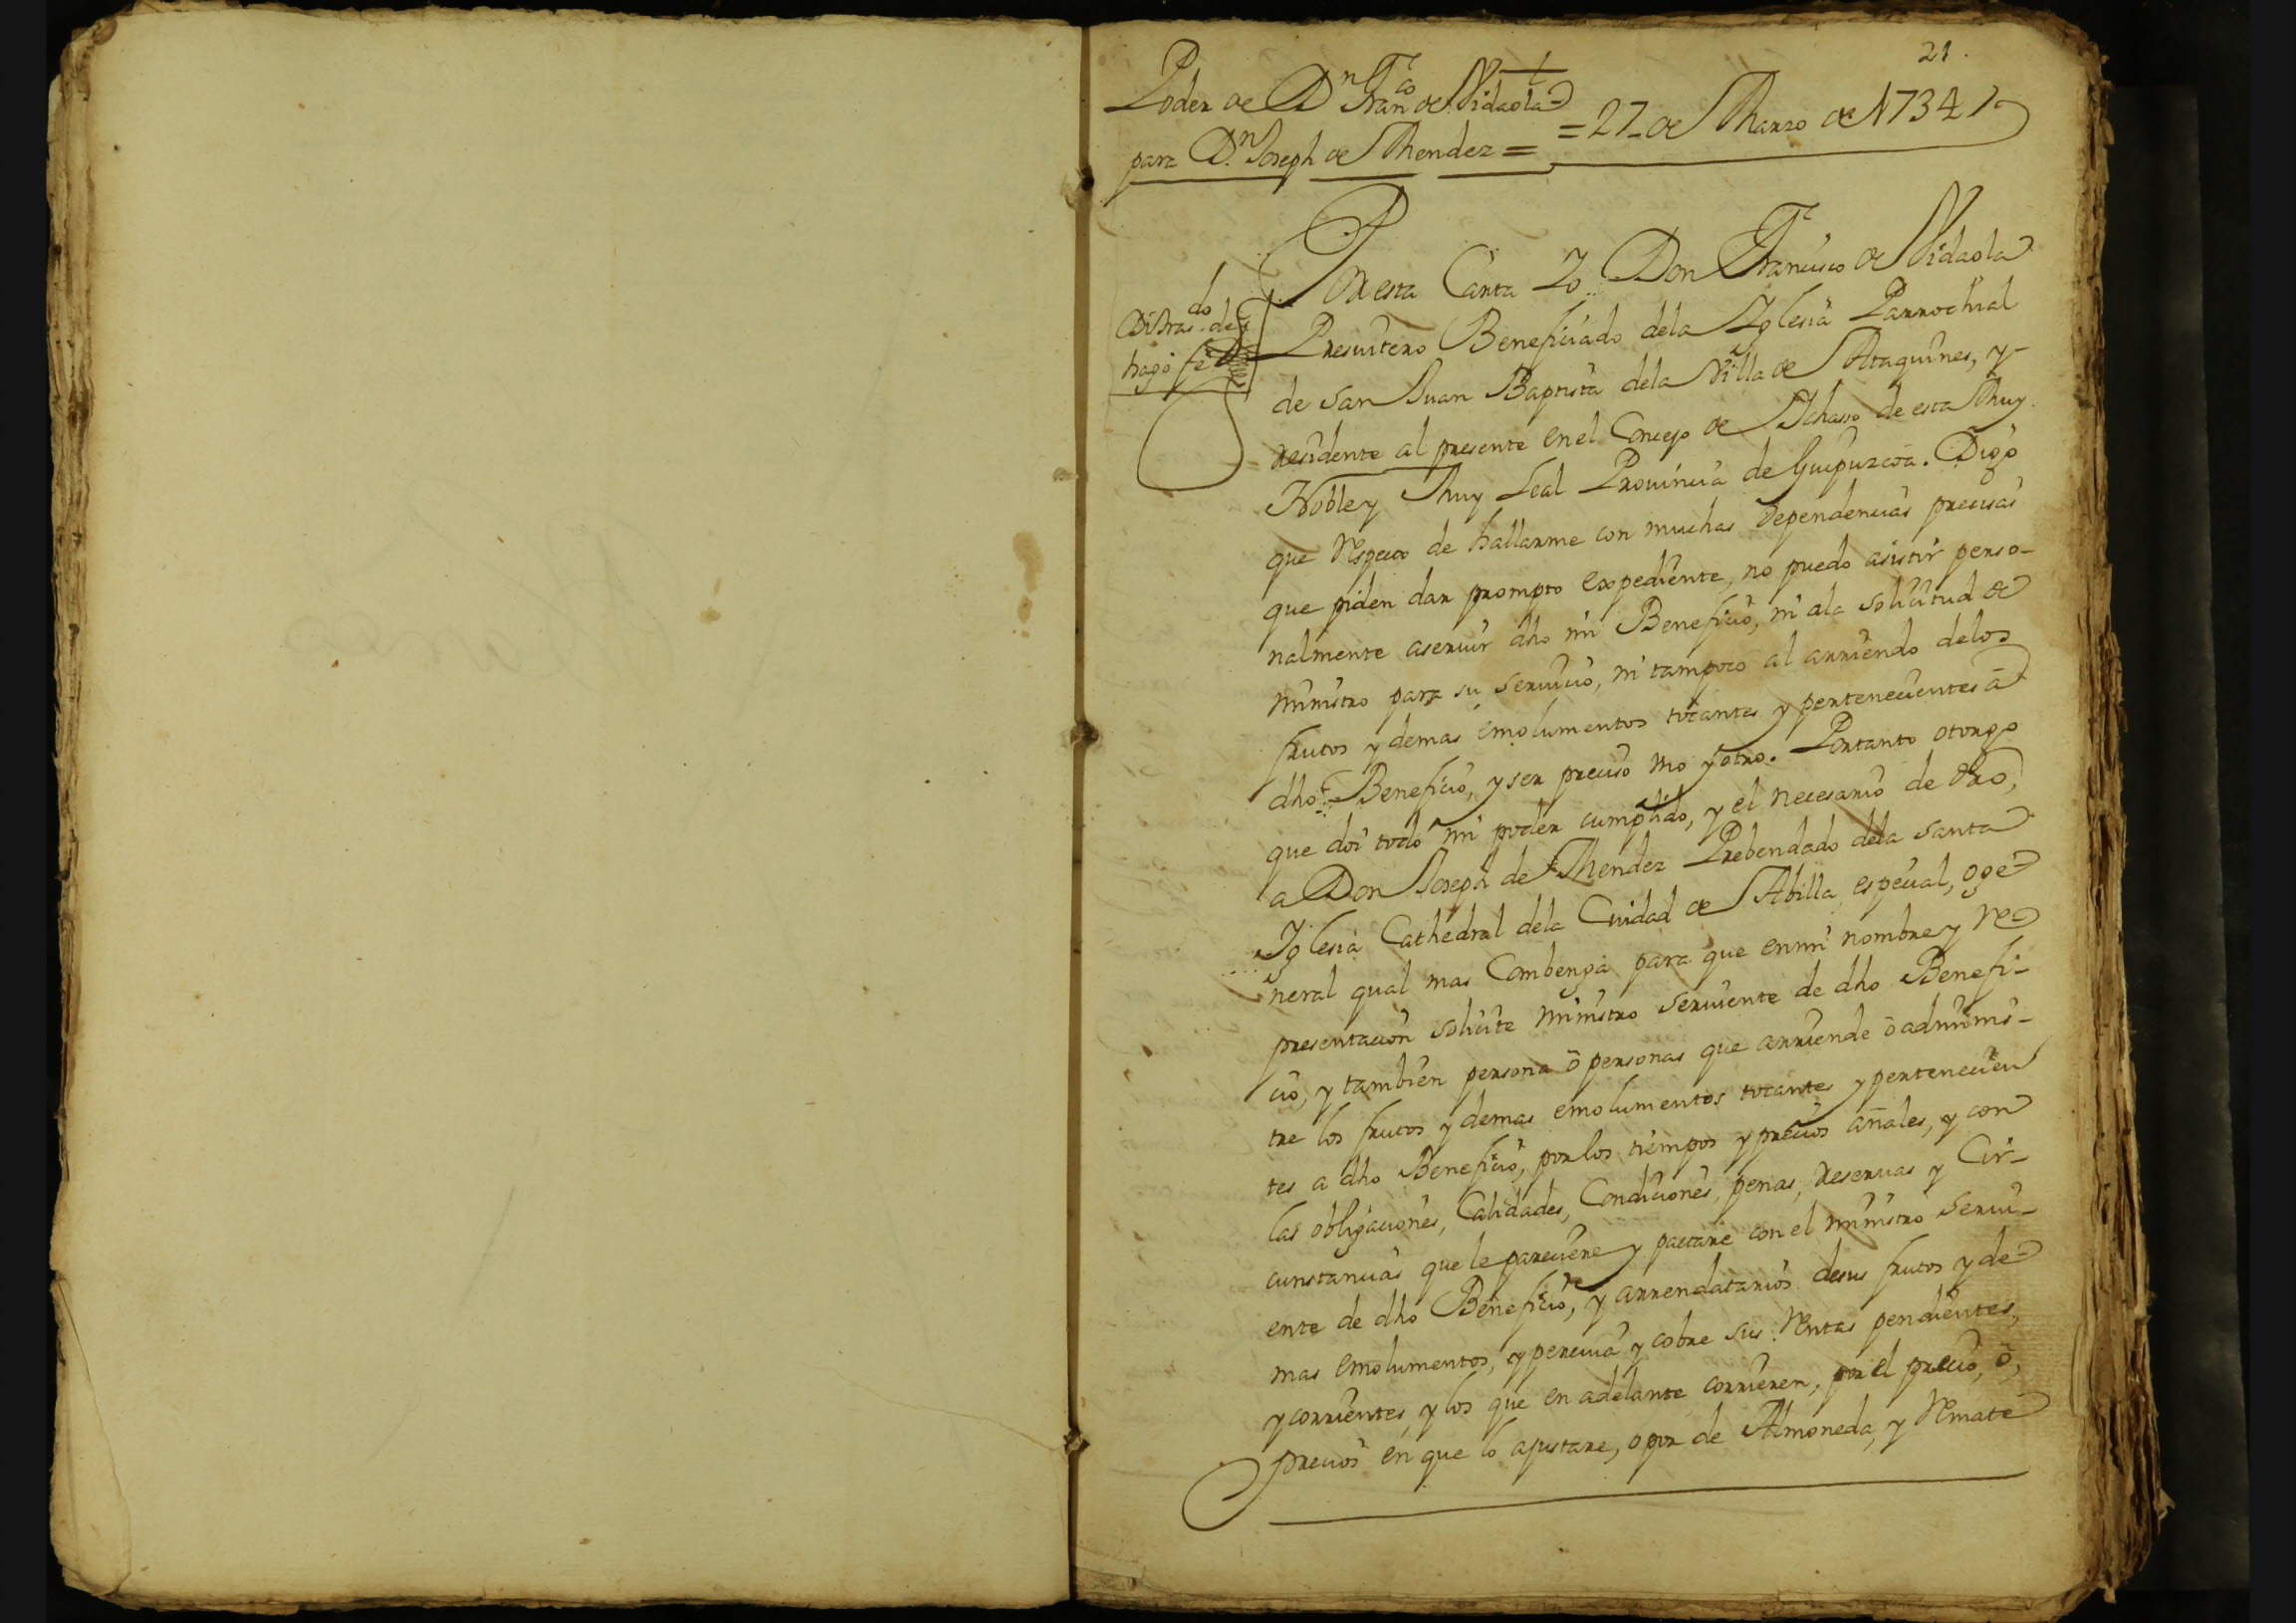 21.
Poder de Dn Franco de Vidaola
= 27 de Marzo de 1734
para Dn Joseph de Mendez =
Por esta Carta Yo Don Francisco de Vidaola
do de
hago fe
Presuitero Beneficiado dela Yglesia Parrochial
de San Juan Baptista dela Villa de Ataquines, y
residente al presente en el Concejo de de esta Muy
Noble y Muy Leal Prouincia de Guipuzcoa. Digo
que respecto de hallarme con muchas dependencias precisas
que piden dar prompto expediente, no puedo asistir perso-
nalmente aseruir dho mi Beneficio, ni ala solicitud de
ministro para su seruicio, ni tampoco al arriendo delos
frutos y demas emolumentos tocantes y pertenecientes a
dho Beneficio, y ser preciso uno y otro. Portanto otorgo
que doi todo mi poder cumplido, y el necesario de dro,
a Don Joseph de Mendez Prebendado dela Santa
Yglesia Cathedral dela Ciudad de Abilla, especial, o ge
neral qual mas Combenga para que en mi nombre y re
presentacion solicite ministro seruiente de dho Benefi-
cio, y tambien persona o personas que arriende o adminis-
tre los frutos y demas emolumentos tocantes y pertenecien
tes a dho Beneficio, por los tiempos y precios añales, y con
las obligaciones, Calidades, Condiciones, penas, reseruas y Cir-
cunstancias que le pareciere y pactare con el ministro serui-
ente de dho Beneficio, y arrendatarios desus frutos y de
mas emolumentos, y perciua y cobre sus rentas pendientes,
y corrientes, y los que en adelante corrieren, por el precio, o,
precios en que lo ajustare, o por de Almoneda, y remate